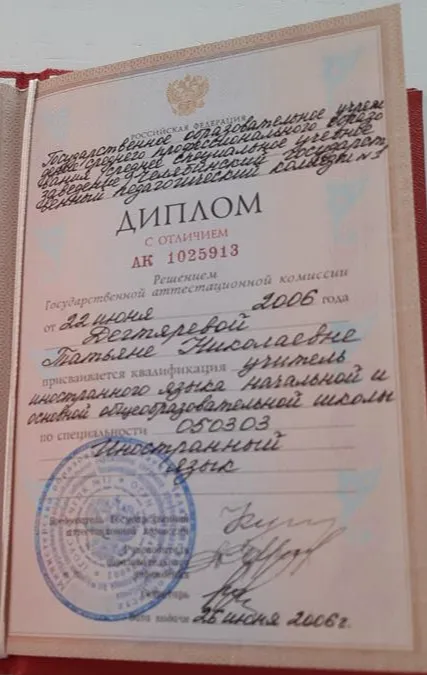 РОССИЙСКАЯ ФЕДЕРАЦИЯ
Государственное образовательное учреж
дение среднего профессионального образо
вания (среднее специальное учебное
заведение) Челябинский государст
венный педагогический колледж №3
ДИПЛОМ
С ОТЛИЧИЕМ
АК 1025913
Решением
Государственной аттестационной комиссии
от 22 июня 2006 года
Дегтяревой
Татьяне Николаевне
присваивается квалификация учитель
иностранного языка начальной и
основной общеобразовательной школы
по специальности 050303
Иностранный
язык
Председатель Государственной
аттестационной комиссии
Руководитель
образовательного
учреждения
Секретарь
Дата выдачи 26 июня 2006г.